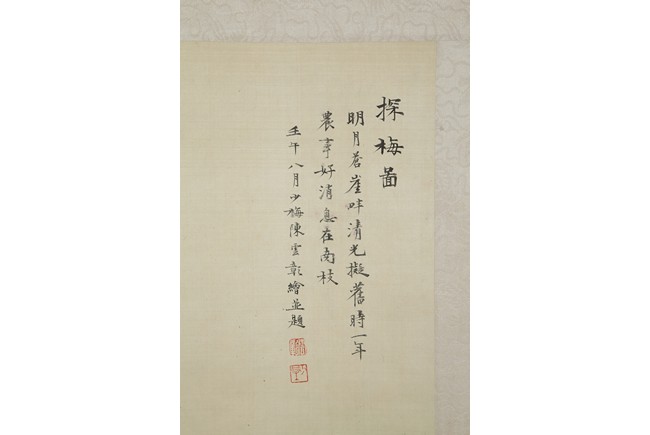 探梅圖
明月蒼崖畔清光擬舊時一年
農事好消息在南枝
壬午八月少梅陳雲彰繪並題